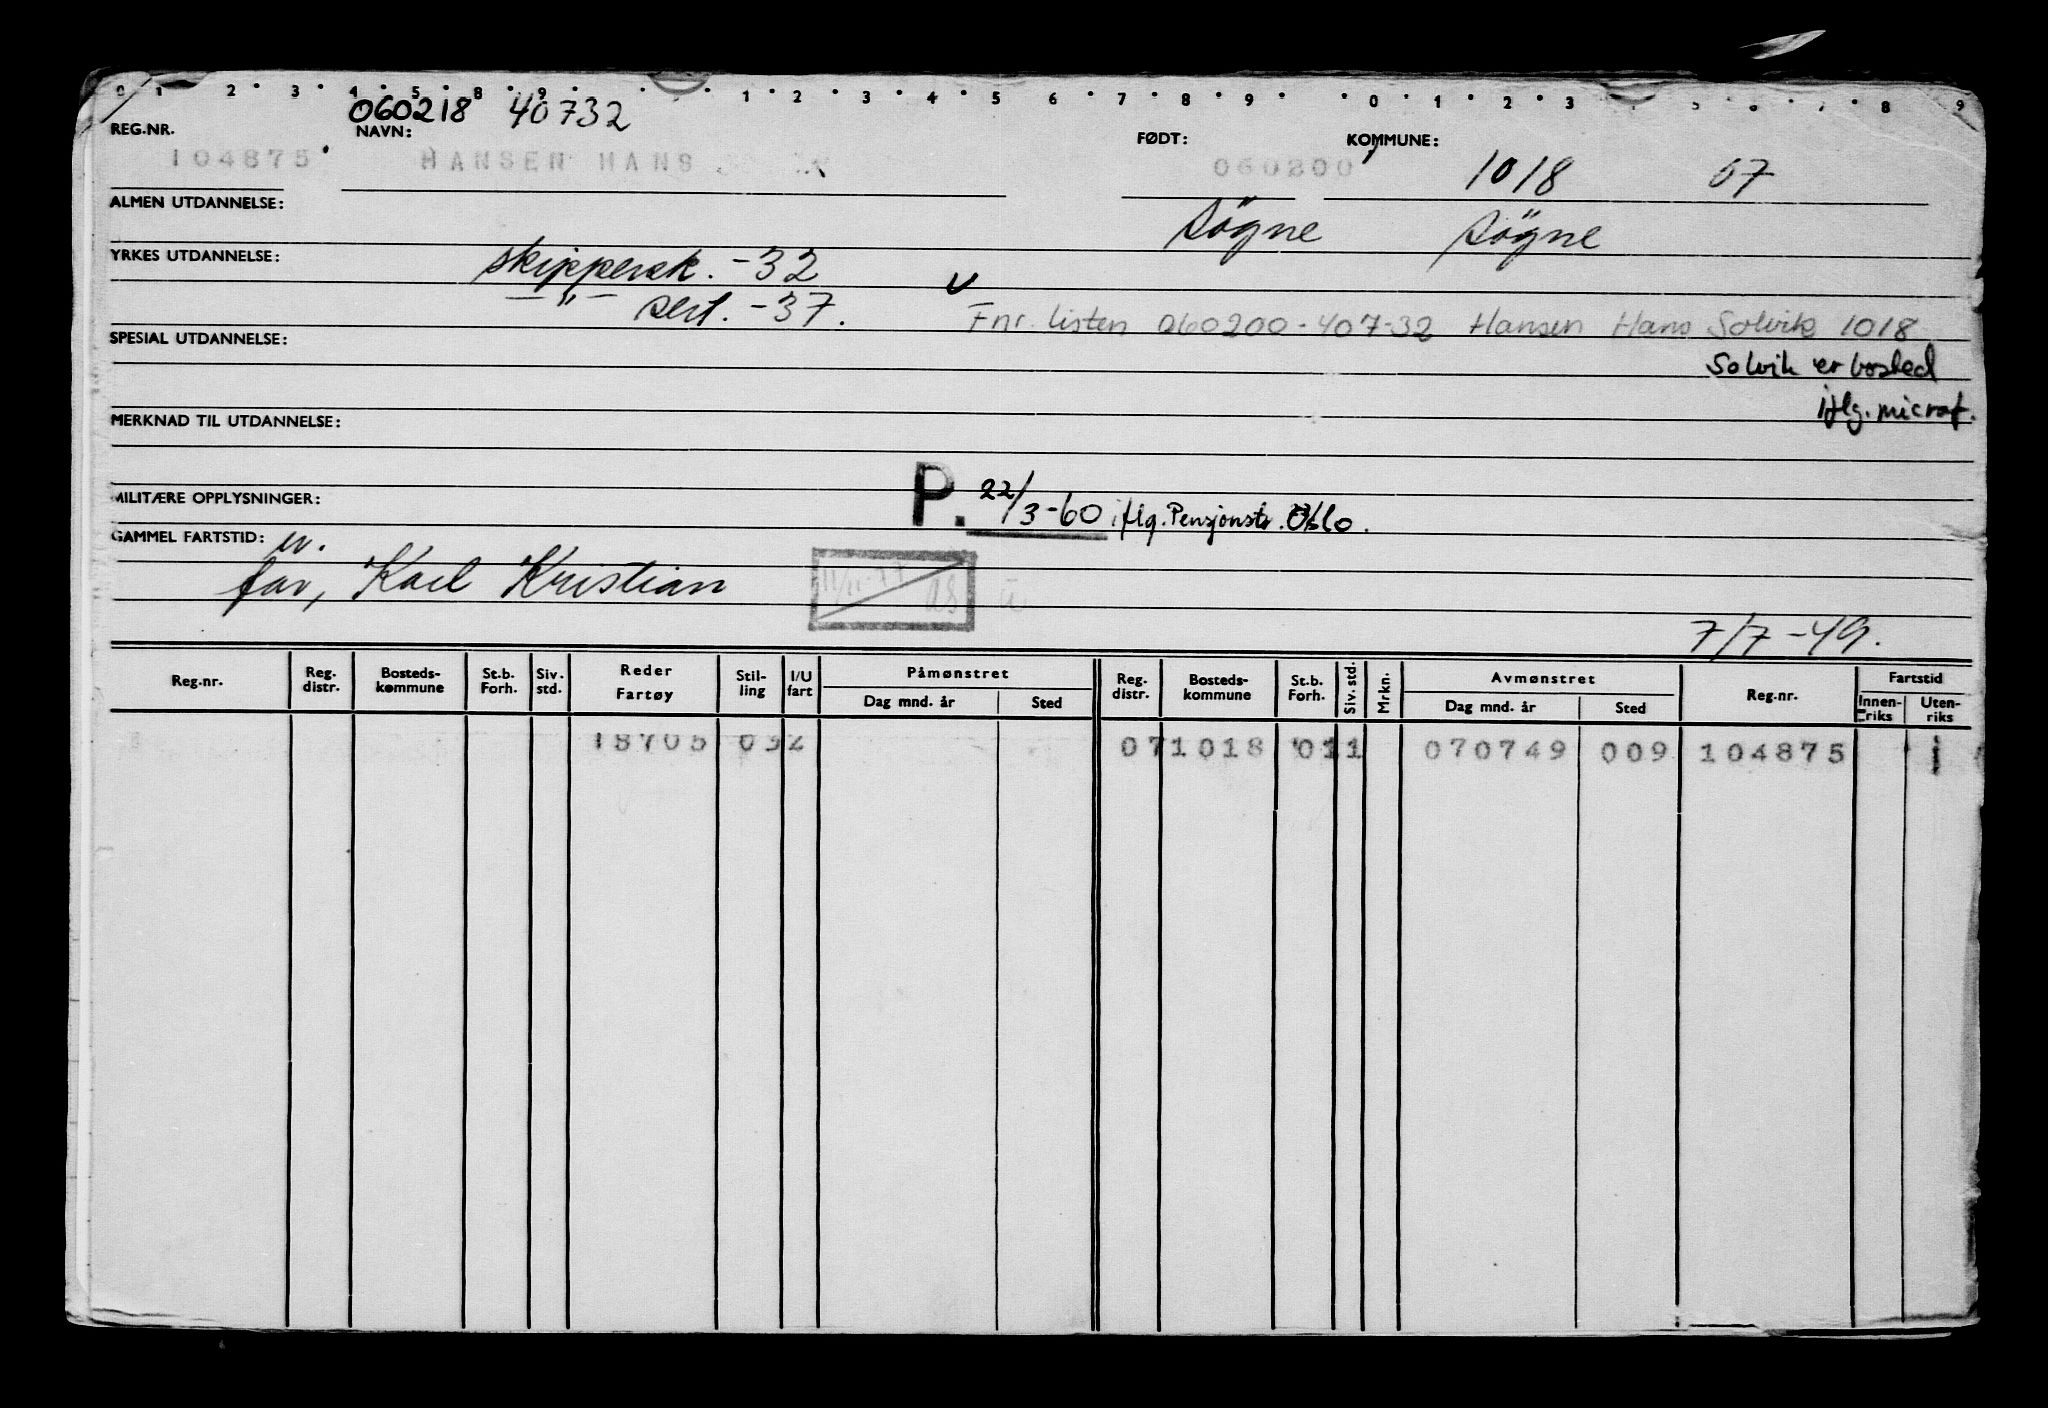 0 1 2 3 4 5 8 9 1 2 3 4 5 6 7 8 9 0 1 2 3 5 6 7 8 9
060218 40732
REG.NR. NAVN: FØDT: KOMMUNE:
104875 HANSEN HANS 060200 1018 07
ALMEN UTDANNELSE: Søgne Søgne
YRKES UTDANNELSE: skippersk. -32
—"— sert. -37.
Fnr. listen 060200-407-32 Hansen Hans Solvik 1018
SPESIAL UTDANNELSE:
Solvik er bosted
iflg. microf.
MERKNAD TIL UTDANNELSE:
MILITÆRE OPPLYSNINGER: P. 22/3-60 iflg. Pensjonstr. Oslo.
GAMMEL FARTSTID: u.
far, Karl Kristian 11/11-77
7/7-49.
Reg.nr. Reg. distr. Bosteds-kommune St.b. Forh. Siv. std. Reder Fartøy Stil-ling I/U fart Påmønstret Dag mnd. år Sted Reg. distr. Bosteds-kommune St.b. Forh. Siv. std. Mrkn. Avmønstret Dag mnd. år Sted Reg.nr. Fartstid Innen-riks Uten-riks
18705 032 071018 011 070749 009 104875 1